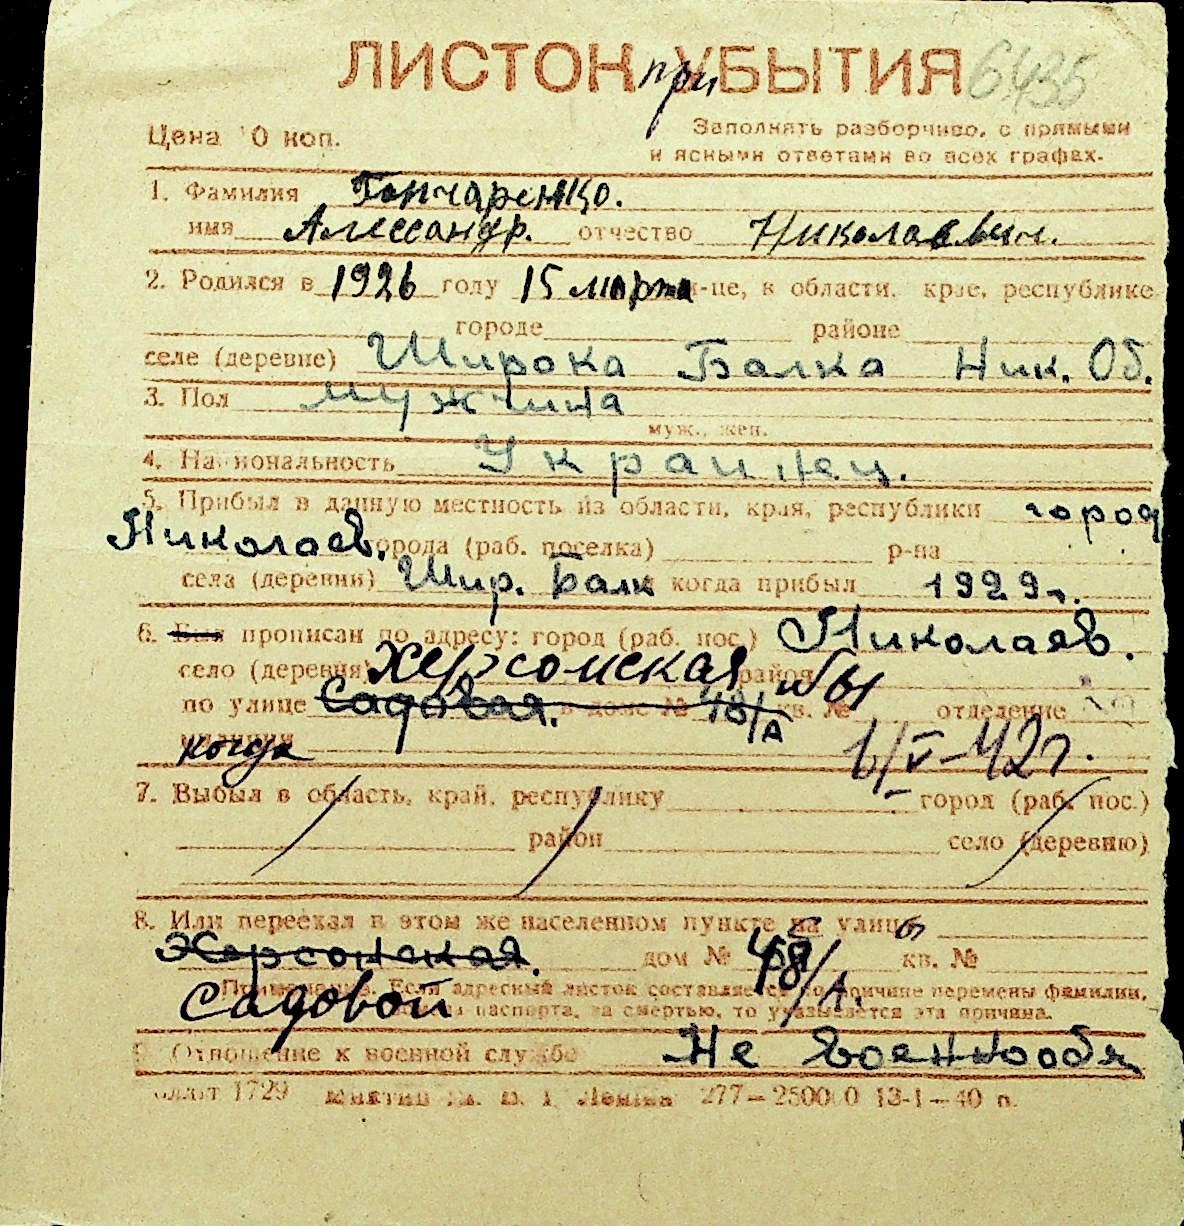 ЛИСТОК при УБЫТИЯ 6435
Цена 10 коп.
Заполнять разборчиво, с прямыми
и ясными ответами во всех графах.
1. Фамилия Гончаренко.
имя Александр. отчество Николаевич.
2. Родился в 1926 году 15 марта м-це, в области, крае, республике
городе районе
селе (деревне) Широка Балка Ник. Об.
3. Пол мужчина
муж., жен.
4. Национальность Украинец.
5. Прибыл в данную местность из области, края, республики город
Николаев. города (раб. поселка) р-на
села (деревни) Шир. Балк когда прибыл 1929 г.
6. Был прописан по адресу: город (раб. пос.) Николаев.
село (деревня) Херсонская район
по улице Садовая. в доме № 48/А кв. № отделение
милиции когда 1/V-42 г.
7. Выбыл в область, край, республику город (раб. пос.)
район село (деревню)
8. Или переехал в этом же населенном пункте на улицу
Херсонская. дом № 48/А. кв. №
Садовой
Примечание. Если адресный листок составляется по причине перемены фамилии,
паспорта, за смертью, то указывается эта причина.
9. Отношение к военной службе Не военнообя.
1729 им. В. И. Ленина 277—250000 13-1—40 п.